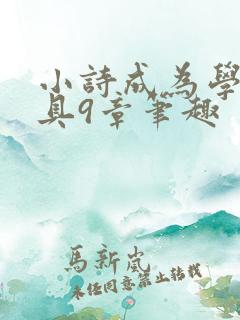 小詩成為學
具9章筆趣
馬新嵐
未經同意禁止轉載